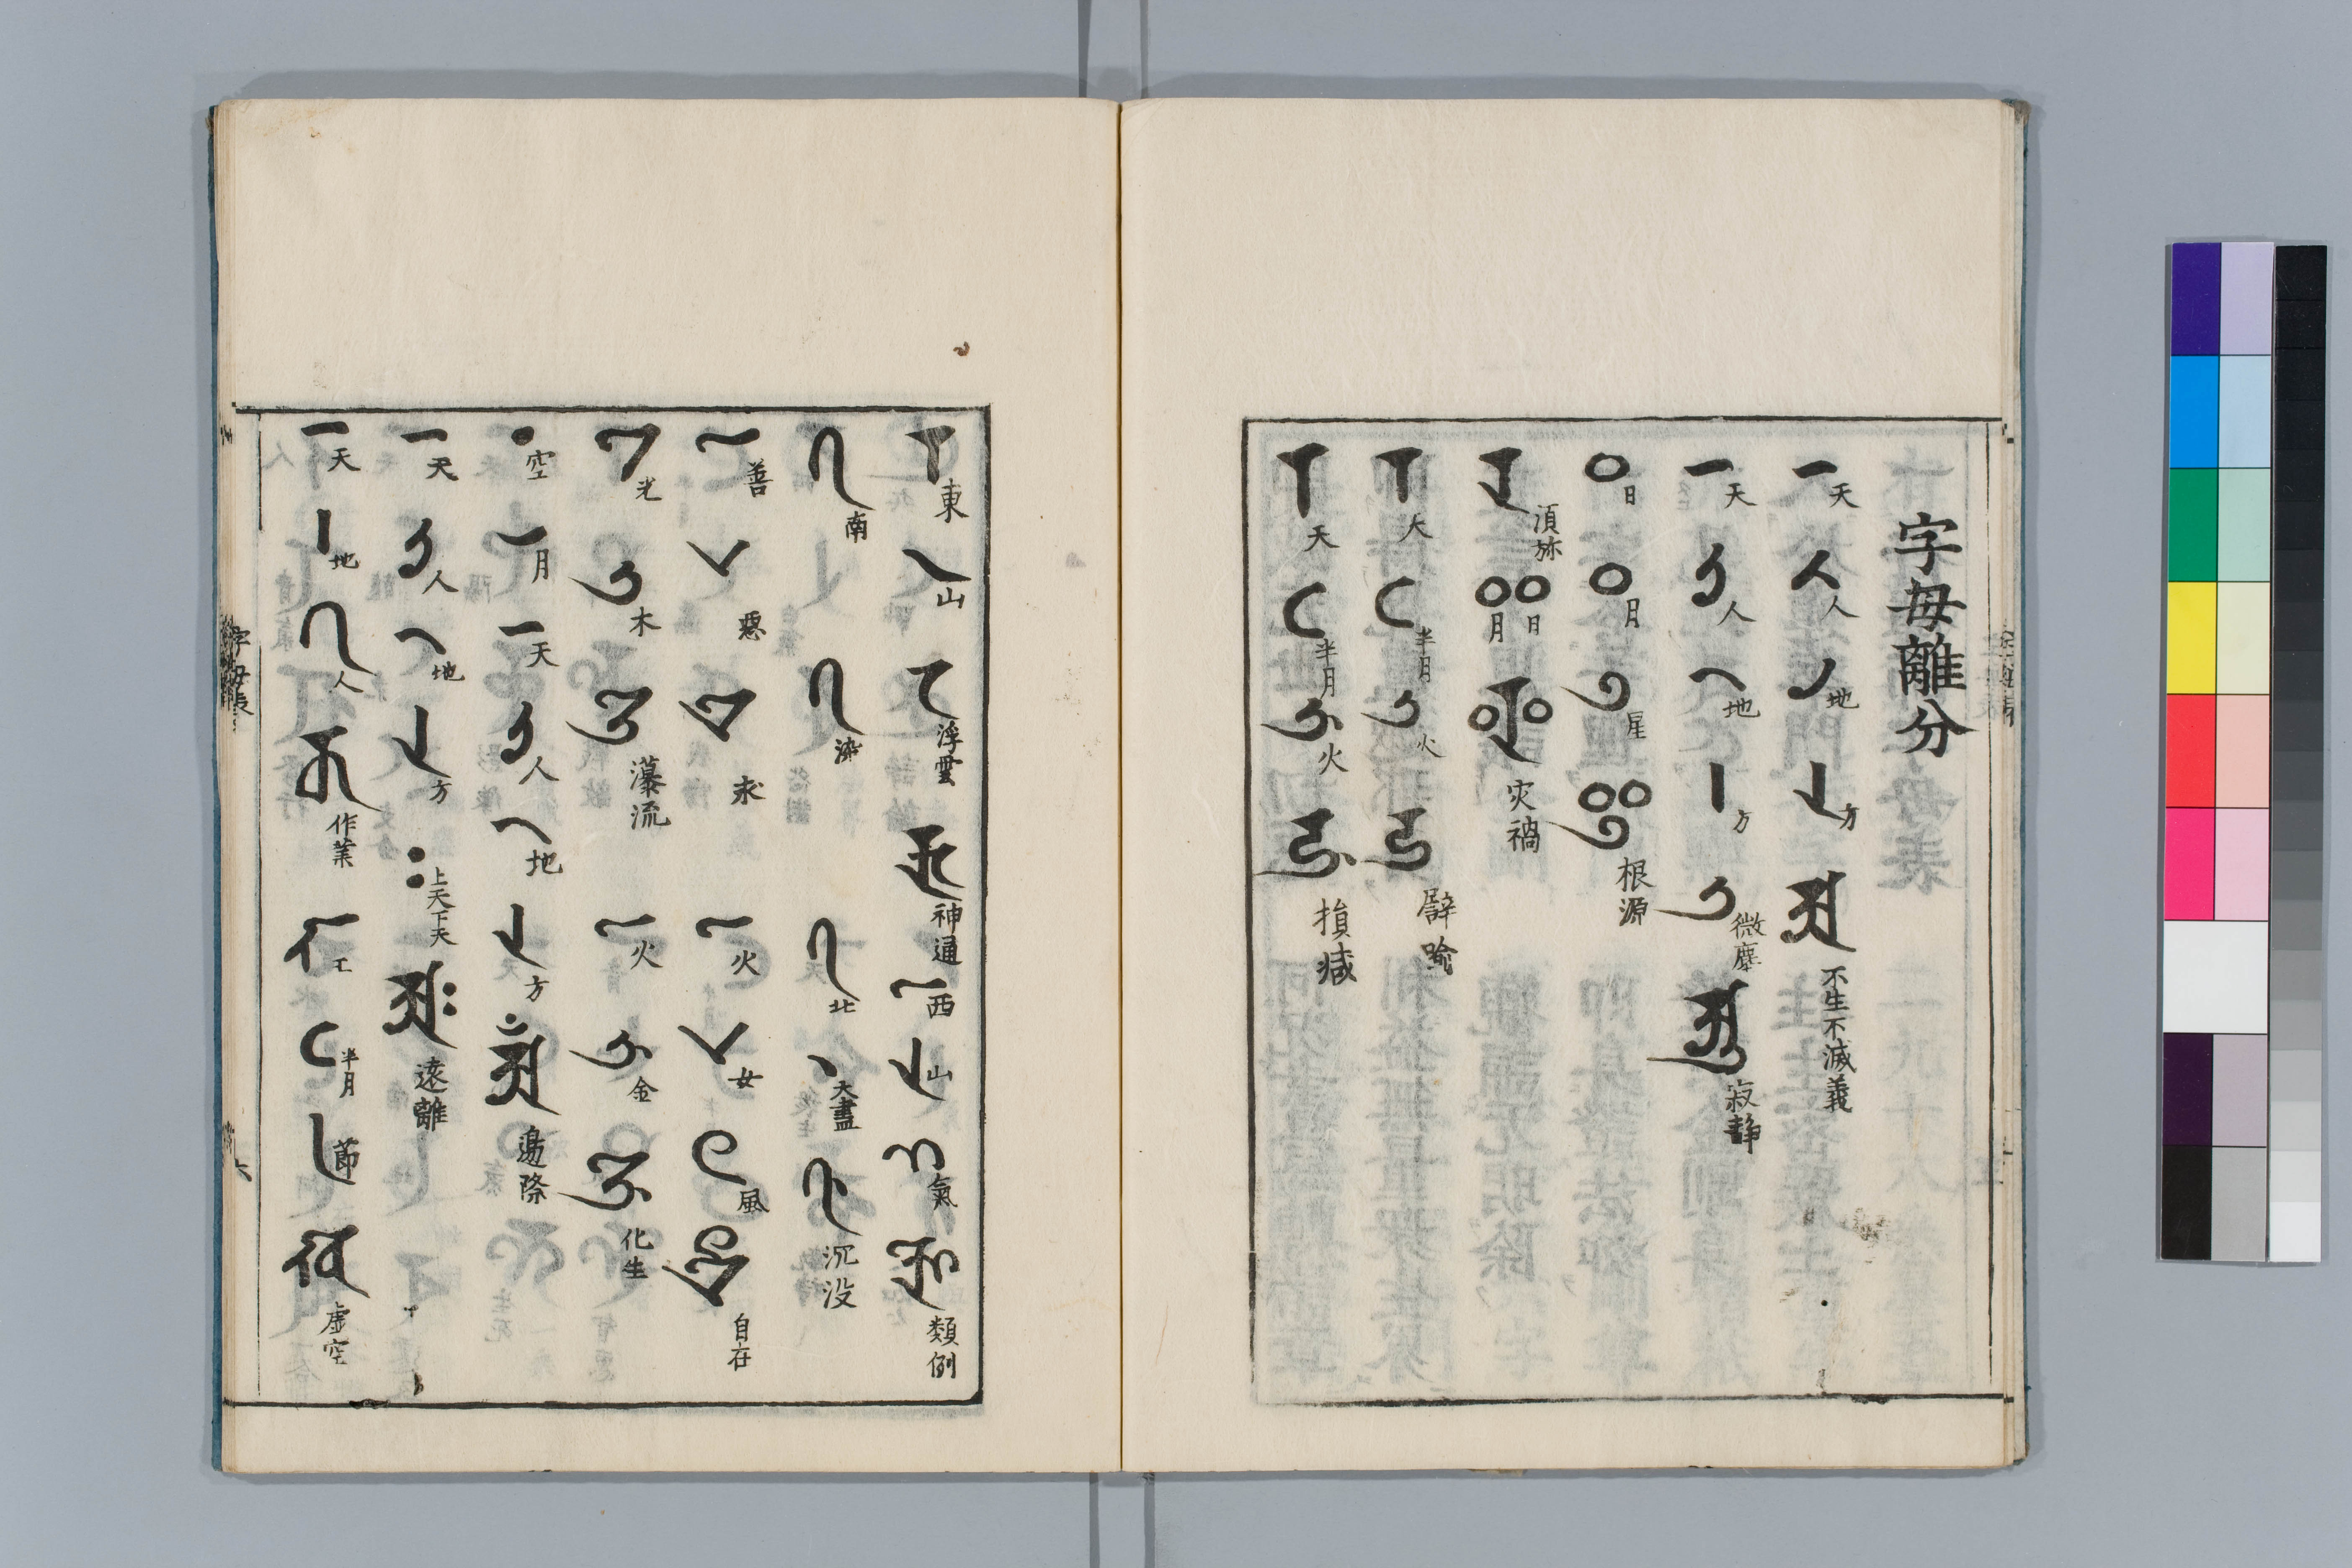 字母離分
天 人 地 方 𑖀 不生不滅義
天 人 地 方 微塵 𑖁 寂静
日 月 星 𑖂 根源
湏弥 日 月 𑖃 灾禍
半月 火 𑖄 譬喻
天 半月 火 𑖅 損减
東 山 浮雲 𑖆 神通 西 山 氣 𑖇 類例
南 𑖈 染 北 𑖉 沉没
善 惡 𑖊 求 火 女 風 𑖋 自在
光 木 𑖌 瀑流 火 金 𑖍 化生
空 月 天 人 地 方 𑖀𑖽 邊際
天 人 地 方 上天下天 𑖀𑖾 遠離
天 地 人 𑖎 作業 工 半月 節 𑖏 虛空
字母表
六